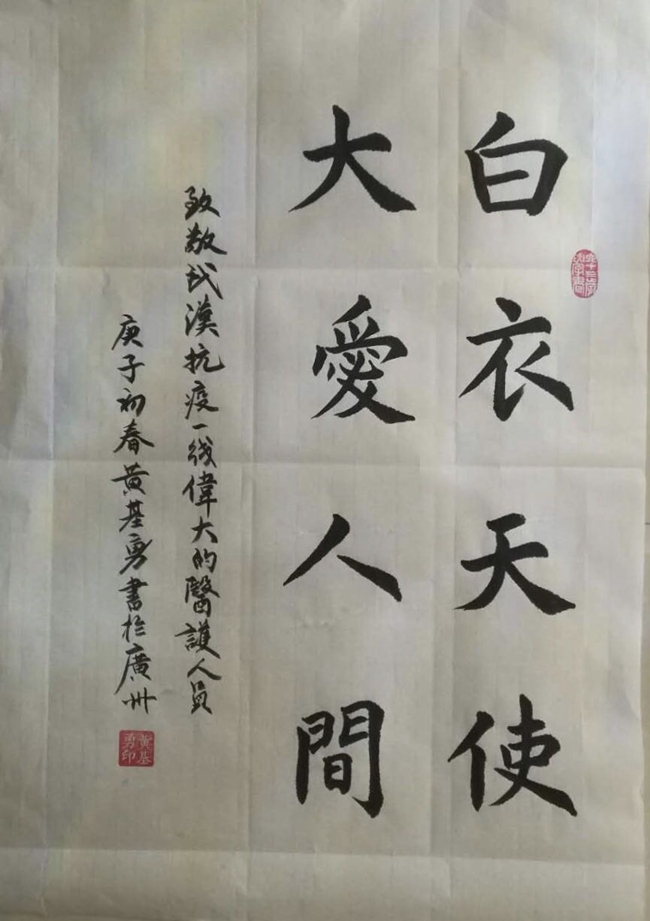 白衣天使
大愛人間
致敬武漢抗疫一线偉大的醫護人員
庚子初春黄基勇書於廣州
黄基勇印